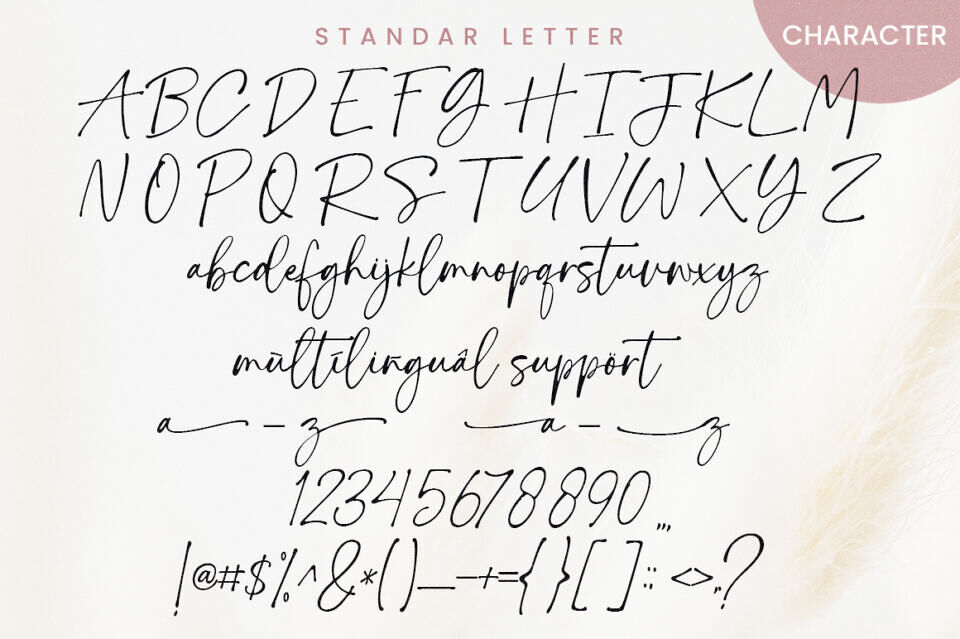 STANDAR LETTER
CHARACTER
ABCDEFGHIJKLM
NOPQRSTUVWXYZ
abcdefghijklmnopqrstuvwxyz
mūltīlinguâl suppört
a - z a - z
12345678890 ,,,
!@#$%^&*()_-+={}[]:; <>,.?